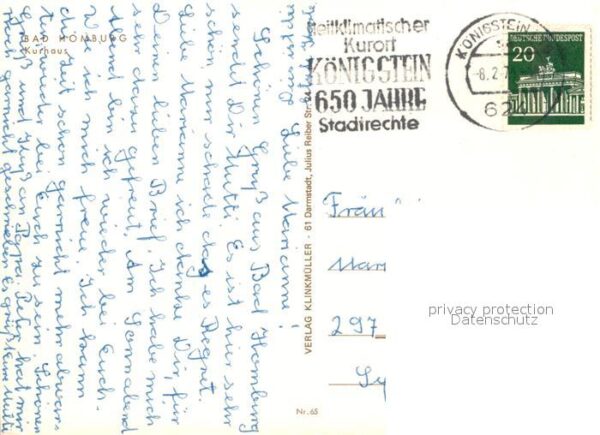 BAD HOMBURG
Kurhaus
Heilklimatischer
Kurort
KÖNIGSTEIN
650 JAHRE
Stadtrechte
KÖNIGSTEIN
-8.2.7
62
DEUTSCHE BUNDESPOST
20
Liebe Marianne!
Schönen Gruß aus Bad Homburg
sendet Dir Mutti. Es ist hier sehr
schön nur schade das es Regnet.
Liebe Marianne ich danke Dir, für
Deinen lieben Brief. Ich habe mich
sehr dazu gefreut. Am Sonnabend
Abend bin ich wieder bei Euch.
wo ich mich freu. Ich kann
die Zeit schon garnicht mehr abwarten
wieder bei Euch zu sein. Schönen
Gruß und Kuß an Papa.
VERLAG KLINKMÜLLER - 61 Darmstadt, Julius Reiber Str.
Fräu
Mar
297
Nr. 65
privacy protection
Datenschutz